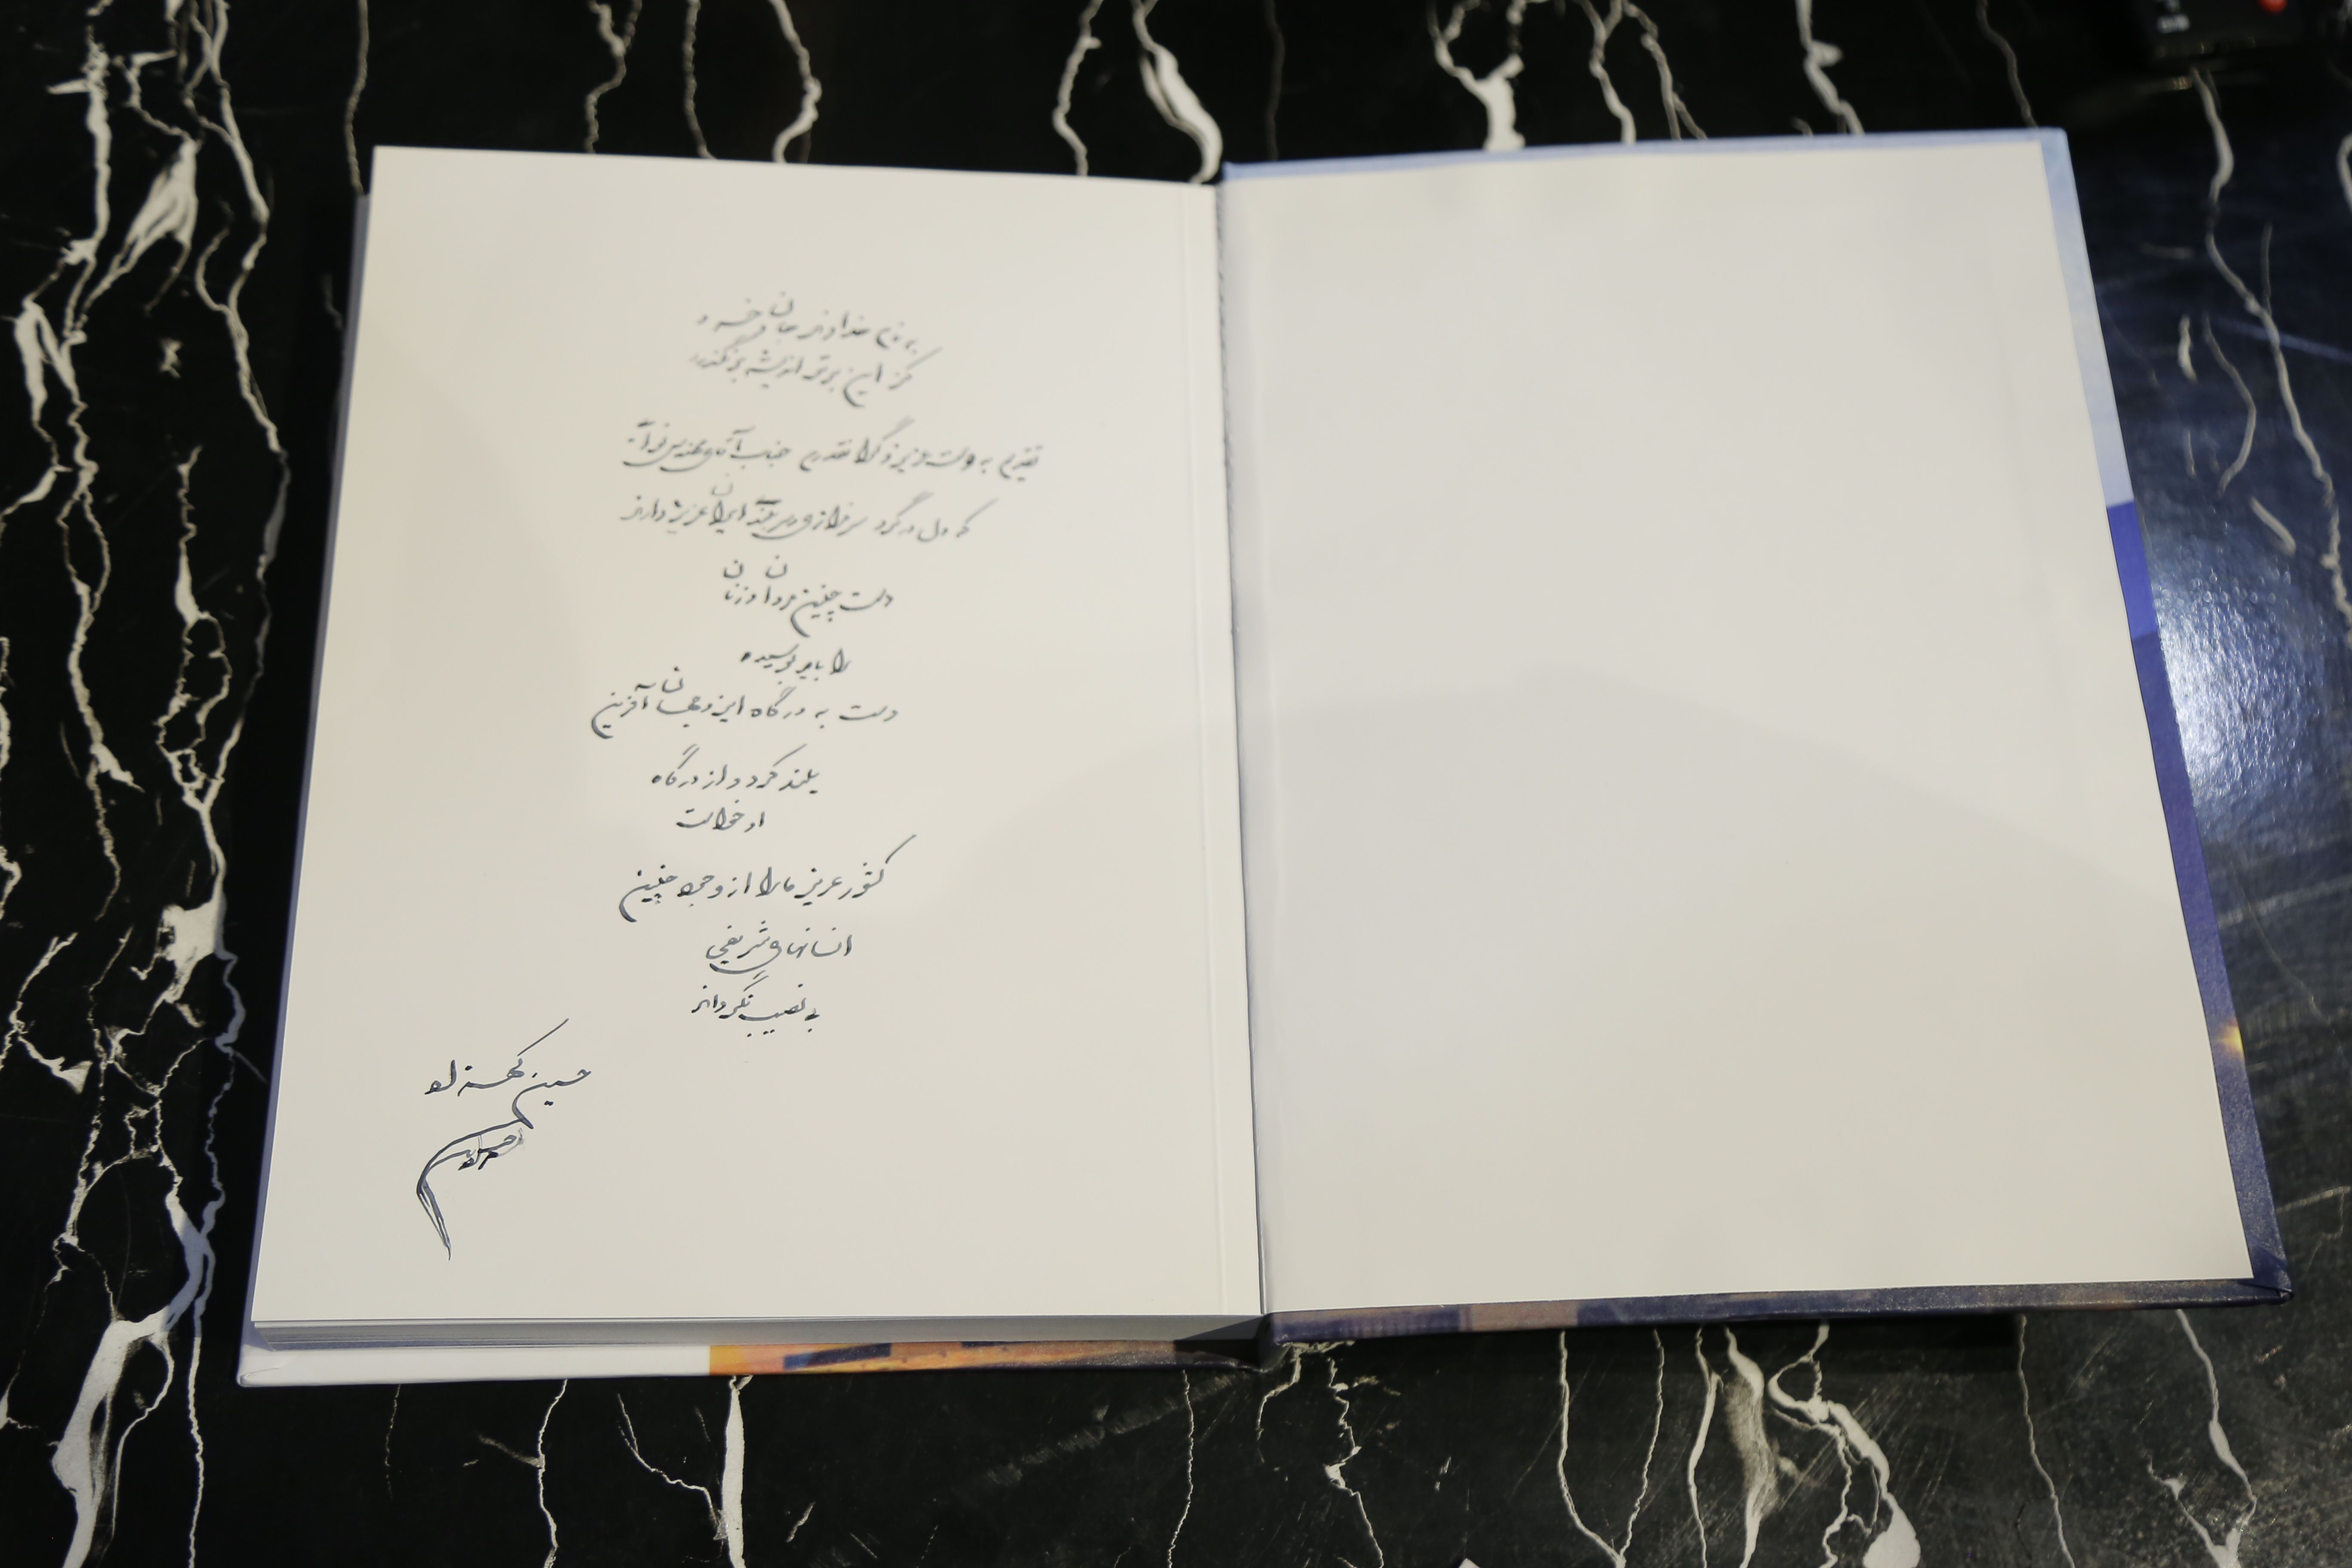 به نام خداوند جان و خرد
کز این برتر اندیشه برنگذرد
تقدیم به دوست عزیز و گرانقدرم جناب آقای مهندس
که دل در گرو سرفرازی و سربلندی ایران عزیز دارند
دست چنین مردان و زنان
را باید بوسید و
دست به درگاه ایزد جهان آفرین
بلند کرد و از درگاه
او خواست
کشور عزیز ما را از وجود چنین
انسانهای شریفی
بی نصیب نگرداند
حسین